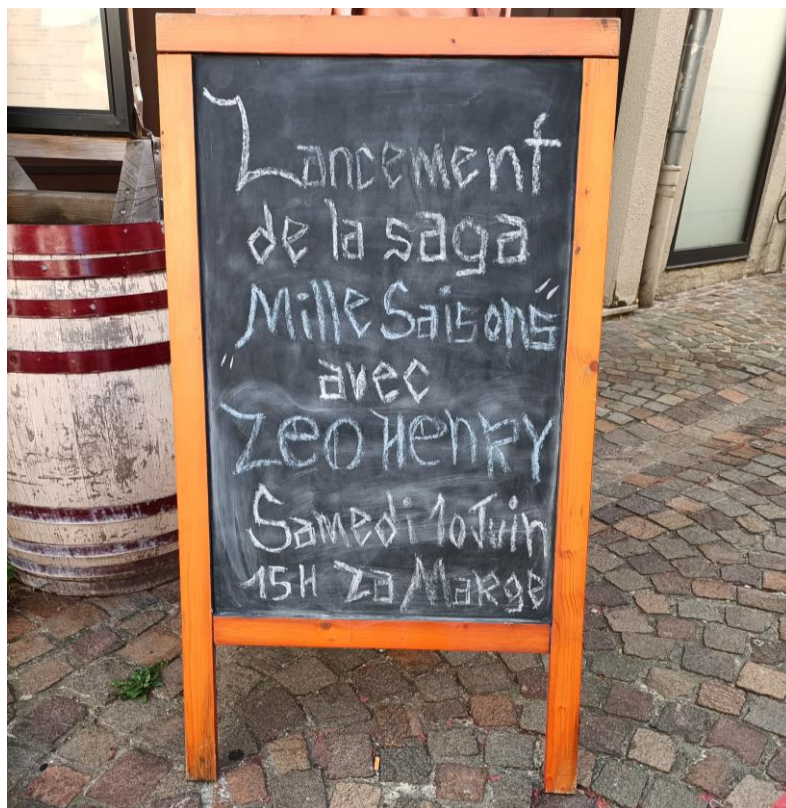 Lancement
de la saga
"Mille Saisons"
avec
Zeo Henry
Samedi 10 Juin
15H La Marge